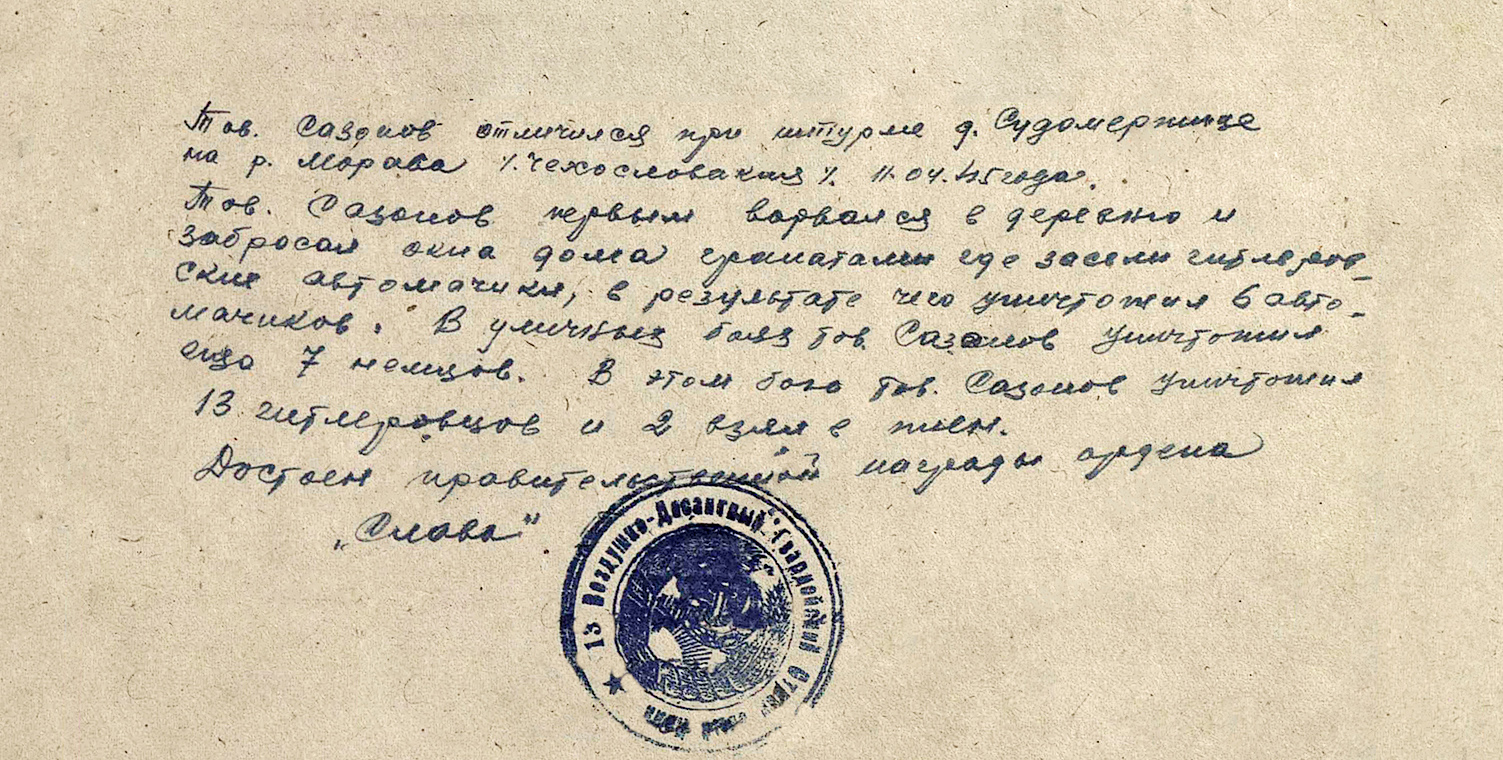 Тов. Сазонов отличился при штурме д. Судомержице
на р. Морава /. Чехословакия /. 11.04.45 года.
Тов. Сазонов первым ворвался в деревню и
забросал окна дома гранатами где засели гитлеров-
ские автомачики, в результате чего уничтожил 6 авто-
мачиков. В уличных боях тов. Сазонов уничтожил
еще 7 немцов. В этом бою тов. Сазонов уничтожил
13 гитлеровцов и 2 взял в плен.
Достоен правительственной награды ордена
„Слава"
13 Воздушно-Десантный Гвардейский